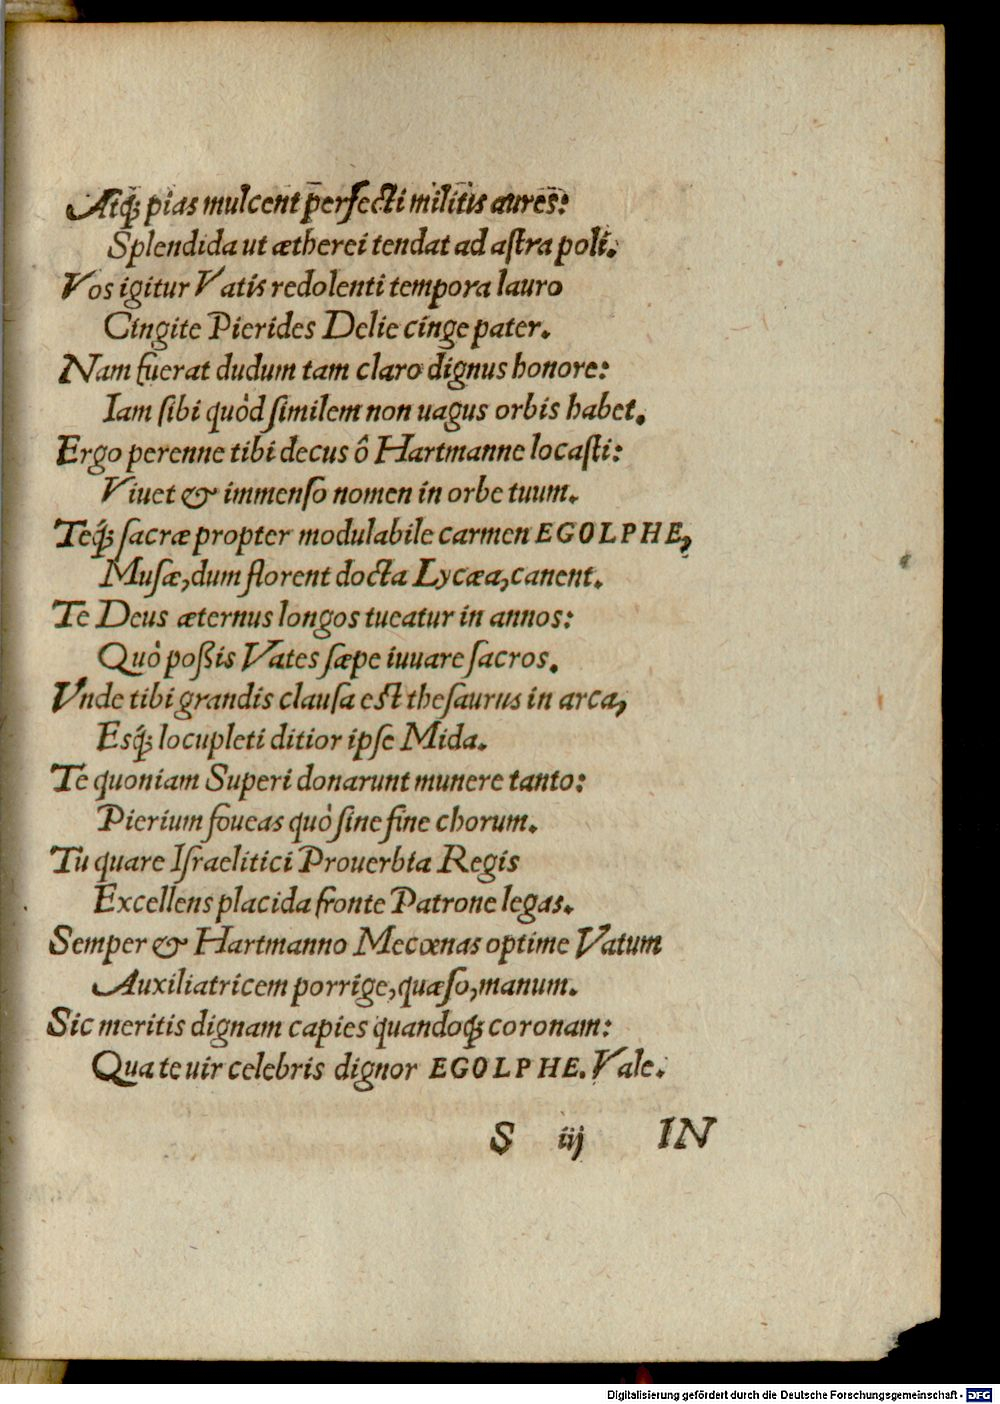 Atq́; pias mulcent perfecti militis aures:
Splendida ut ætherei tendat ad aſtra poli.
Vos igitur Vatis redolenti tempora lauro
Cingite Pierides Delie cinge pater.
Nam fuerat dudum tam claro dignus honore:
Iam ſibi quòd ſimilem non uagus orbis habet.
Ergo perenne tibi decus ô Hartmanne locaſti:
Viuet & immenſo nomen in orbe tuum.
Teq́; ſacræ propter modulabile carmen EGOLPHE,
Muſæ, dum florent docta Lycæa, canent.
Te Deus æternus longos tueatur in annos:
Quò poßis Vates ſæpe iuuare ſacros.
Vnde tibi grandis clauſa eſt theſaurus in arca,
Esq́; locupleti ditior ipſe Mida.
Te quoniam Superi donarunt munere tanto:
Pierium foueas quò ſine fine chorum.
Tu quare Iſraelitici Prouerbia Regis
Excellens placida fronte Patrone legas.
Semper & Hartmanno Mecœnas optime Vatum
Auxiliatricem porrige, quæſo, manum.
Sic meritis dignam capies quandoq́; coronam:
Qua te uir celebris dignor EGOLPHE. Vale.
S iij IN
Digitalisierung gefördert durch die Deutsche Forschungsgemeinschaft - DFG